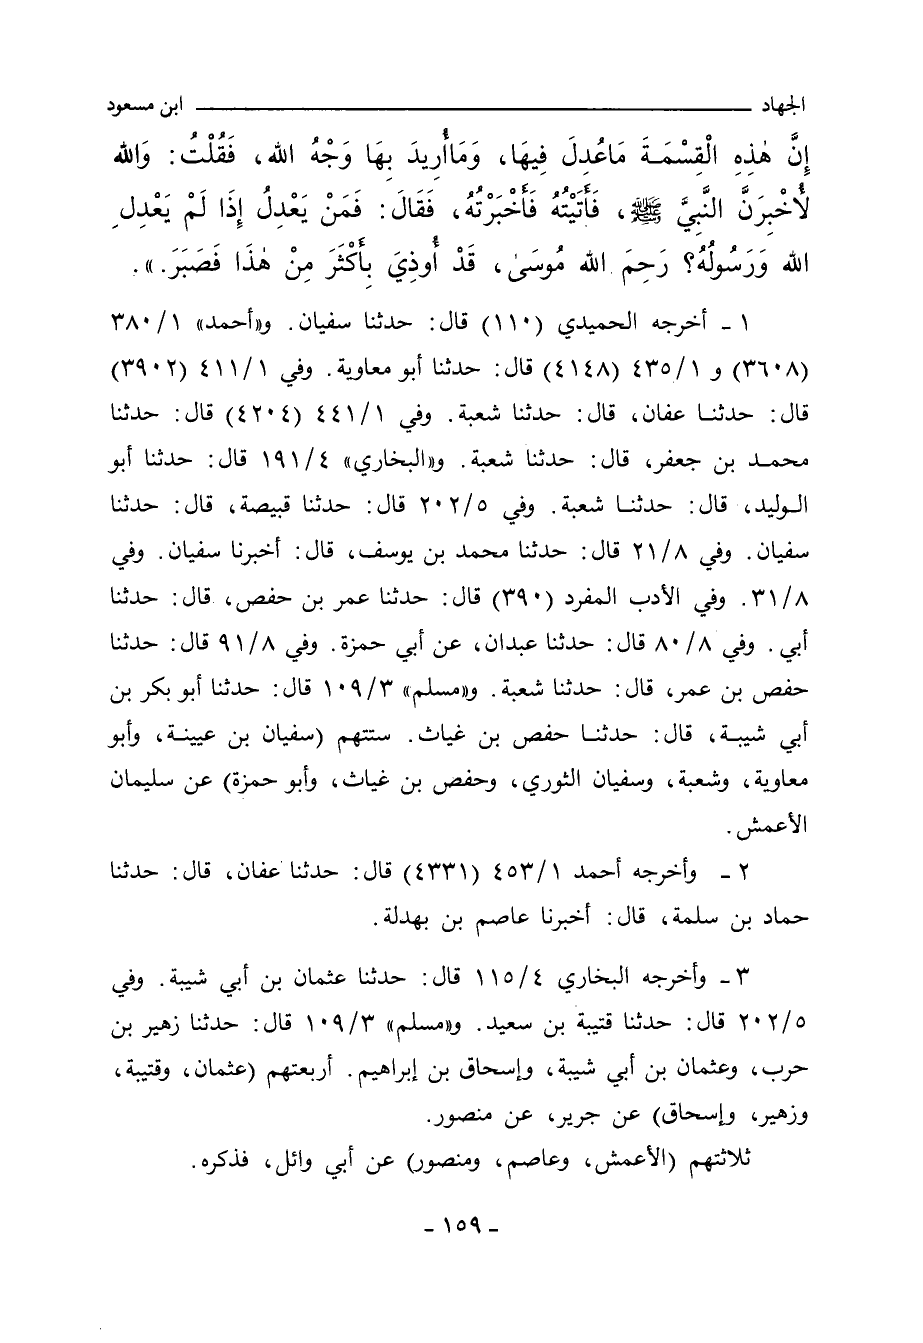 الجهاد ــــــــــــــــــــــــــــــــ ابن مسعود
إِنَّ هٰذِهِ الْقِسْمَـةَ مَاعُدِلَ فِيهَا، وَمَاأُرِيدَ بِهَا وَجْهُ الله، فَقُلْتُ: وَالله
لأُخْبِرَنَّ النَّبِيَّ ﷺ، فَأَتَيْتُهُ فَأَخْبَرْتُهُ، فَقَالَ: فَمَنْ يَعْدِلُ إِذَا لَمْ يَعْدِلِ
الله وَرَسُولُهُ؟ رَحِمَ الله مُوسَىٰ، قَدْ أُوذِيَ بِأَكْثَرَ مِنْ هٰذَا فَصَبَرَ.».
١ ـ أخرجه الحميدي (١١٠) قال: حدثنا سفيان. و«أحمد» ٣٨٠/١
(٣٦٠٨) و ٤٣٥/١ (٤١٤٨) قال: حدثنا أبو معاوية. وفي ٤١١/١ (٣٩٠٢)
قال: حدثنـا عفان، قال: حدثنا شعبة. وفي ٤٤١/١ (٤٢٠٤) قال: حدثنا
محمـد بن جعفر، قال: حدثنا شعبة. و«البخاري» ١٩١/٤ قال: حدثنا أبو
الـوليد، قال: حدثنـا شعبة. وفي ٢٠٢/٥ قال: حدثنا قبيصة، قال: حدثنا
سفيان. وفي ٢١/٨ قال: حدثنا محمد بن يوسف، قال: أخبرنا سفيان. وفي
٣١/٨. وفي الأدب المفرد (٣٩٠) قال: حدثنا عمر بن حفص، قال: حدثنا
أبي. وفي ٨٠/٨ قال: حدثنا عبدان، عن أبي حمزة. وفي ٩١/٨ قال: حدثنا
حفص بن عمر، قال: حدثنا شعبة. و«مسلم» ١٠٩/٣ قال: حدثنا أبو بكر بن
أبي شيبـة، قال: حدثنـا حفص بن غياث. ستتهم (سفيان بن عيينـة، وأبو
معاوية، وشعبة، وسفيان الثوري، وحفص بن غياث، وأبو حمزة) عن سليمان
الأعمش.
٢ ـ وأخرجه أحمد ٤٥٣/١ (٤٣٣١) قال: حدثنا عفان، قال: حدثنا
حماد بن سلمة، قال: أخبرنا عاصم بن بهدلة.
٣ ـ وأخرجه البخاري ١١٥/٤ قال: حدثنا عثمان بن أبي شيبة. وفي
٢٠٢/٥ قال: حدثنا قتيبة بن سعيد. و«مسلم» ١٠٩/٣ قال: حدثنا زهير بن
حرب، وعثمان بن أبي شيبة، وإسحاق بن إبراهيم. أربعتهم (عثمان، وقتيبة،
وزهير، وإسحاق) عن جرير، عن منصور.
ثلاثتهم (الأعمش، وعاصم، ومنصور) عن أبي وائل، فذكره.
ـ ١٥٩ ـ